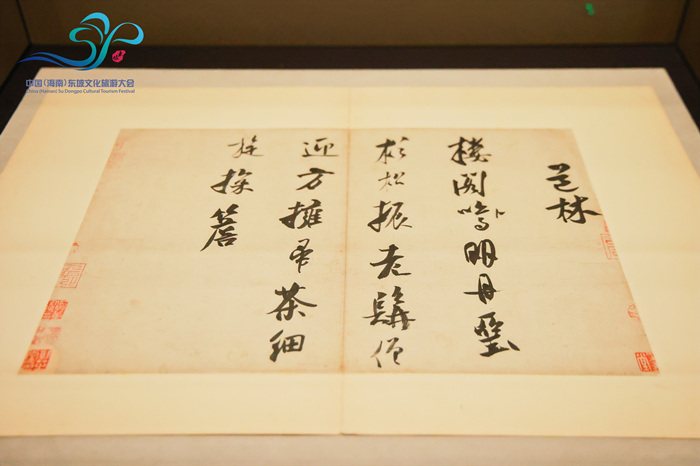 中国(海南)东坡文化旅游大会
China (Hainan) Su Dongpo Cultural Tourism Festival
道林
樓閣鳴明丹堊
杉松振老髯僧
迎方擁帚茶細
旋探簷